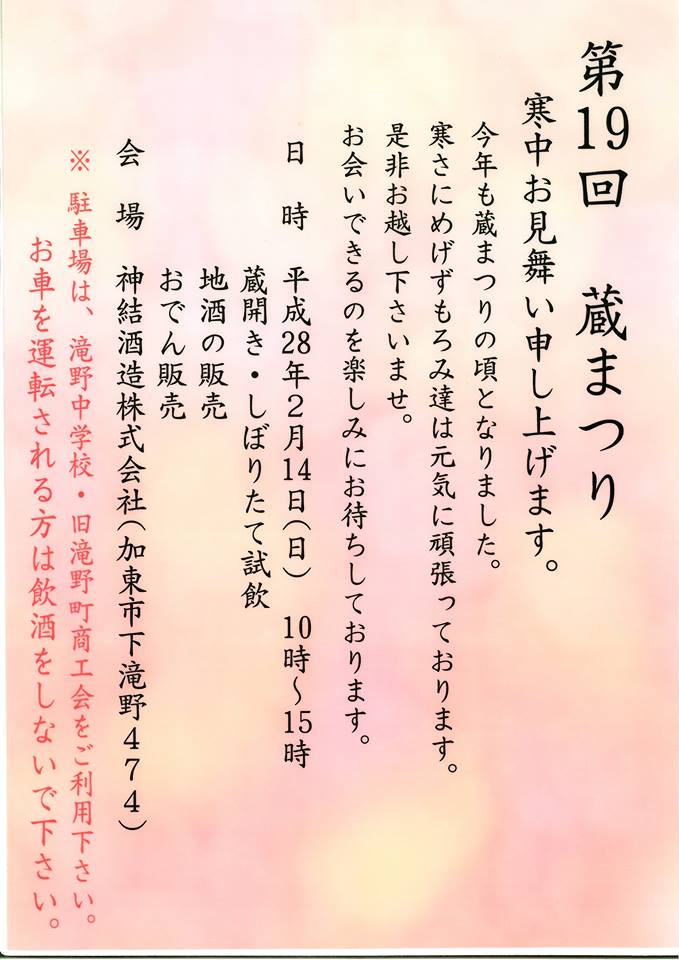 第19回 蔵まつり
寒中お見舞い申し上げます。
今年も蔵まつりの頃となりました。
寒さにめげずもろみ達は元気に頑張っております。
是非お越し下さいませ。
お会いできるのを楽しみにお待ちしております。
日 時 平成28年2月14日(日) 10時～15時
蔵開き・しぼりたて試飲
地酒の販売
おでん販売
会 場 神結酒造株式会社(加東市下滝野474)
※ 駐車場は、滝野中学校・旧滝野町商工会をご利用下さい。
お車を運転される方は飲酒をしないで下さい。